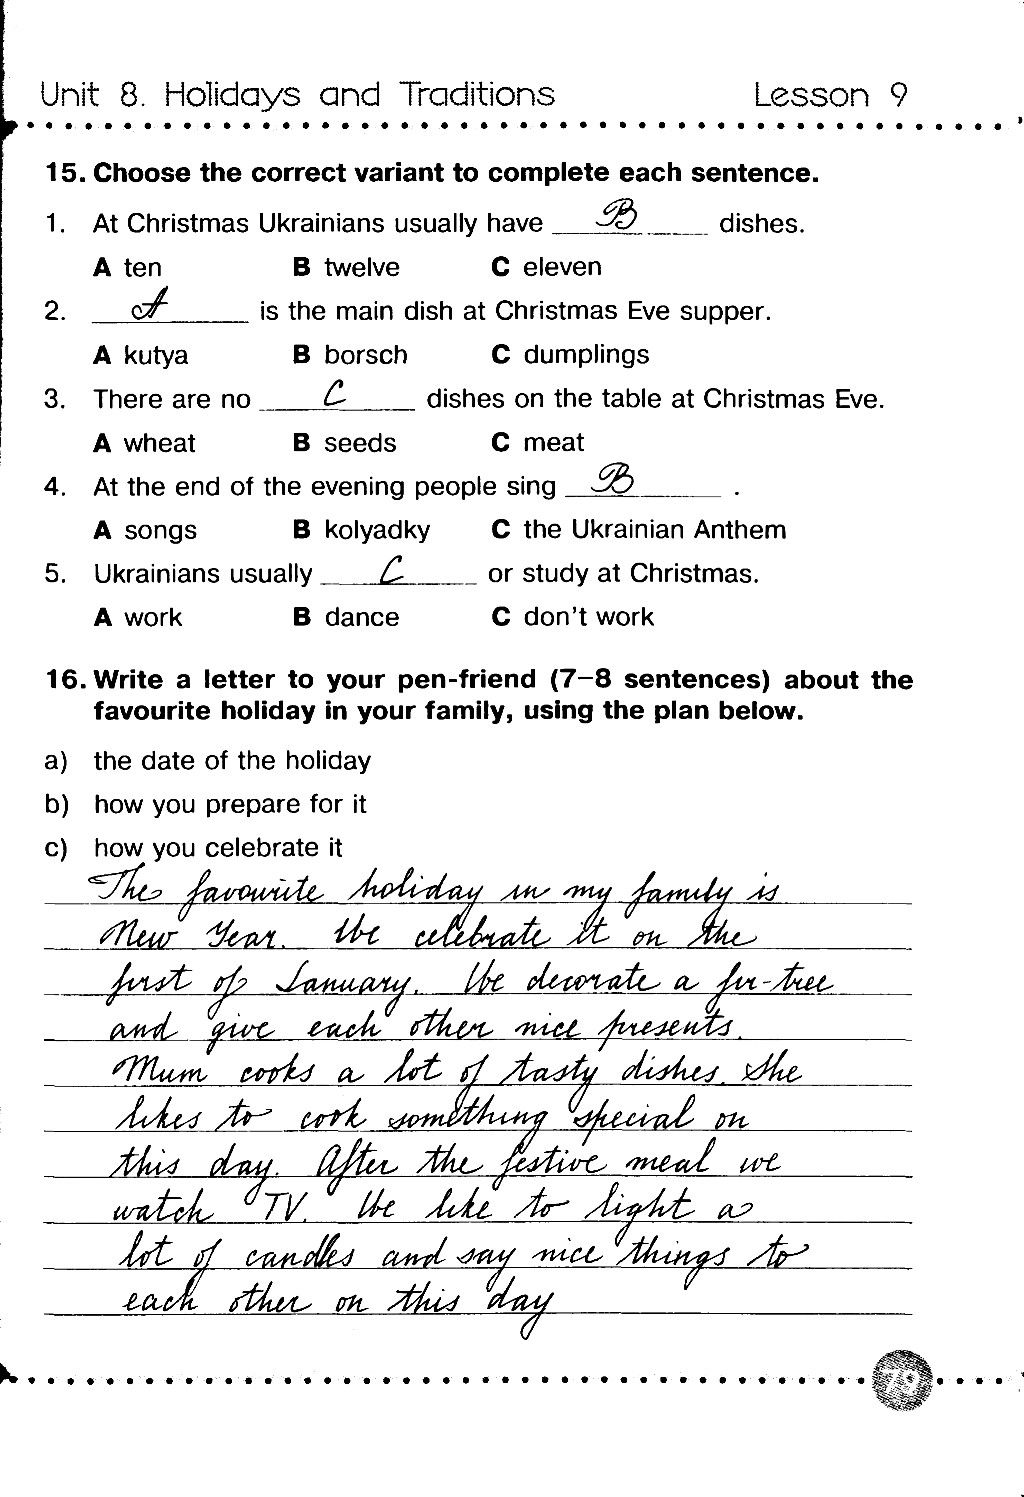 Unit 8. Holidays and Traditions Lesson 9
15. Choose the correct variant to complete each sentence.
1. At Christmas Ukrainians usually have B dishes.
A ten B twelve C eleven
2. A is the main dish at Christmas Eve supper.
A kutya B borsch C dumplings
3. There are no C dishes on the table at Christmas Eve.
A wheat B seeds C meat
4. At the end of the evening people sing B .
A songs B kolyadky C the Ukrainian Anthem
5. Ukrainians usually C or study at Christmas.
A work B dance C don't work
16. Write a letter to your pen-friend (7–8 sentences) about the
favourite holiday in your family, using the plan below.
a) the date of the holiday
b) how you prepare for it
c) how you celebrate it
The favourite holiday in my family is
New Year. We celebrate it on the
first of January. We decorate a fir-tree
and give each other nice presents.
Mum cooks a lot of tasty dishes. She
likes to cook something special on
this day. After the festive meal we
watch TV. We like to light a
lot of candles and say nice things to
each other on this day
79